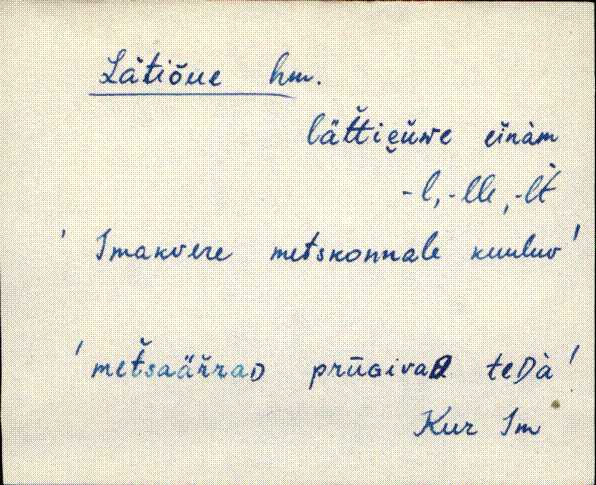 Lätiõue hm.
lät̆tiẹŭwe eĭnàm
-l, -lle, -lt̀
' Imakvere metskonnale kuuluv '
' mĕtsaäĭrraD prūGivaD teDà '
Kur Im